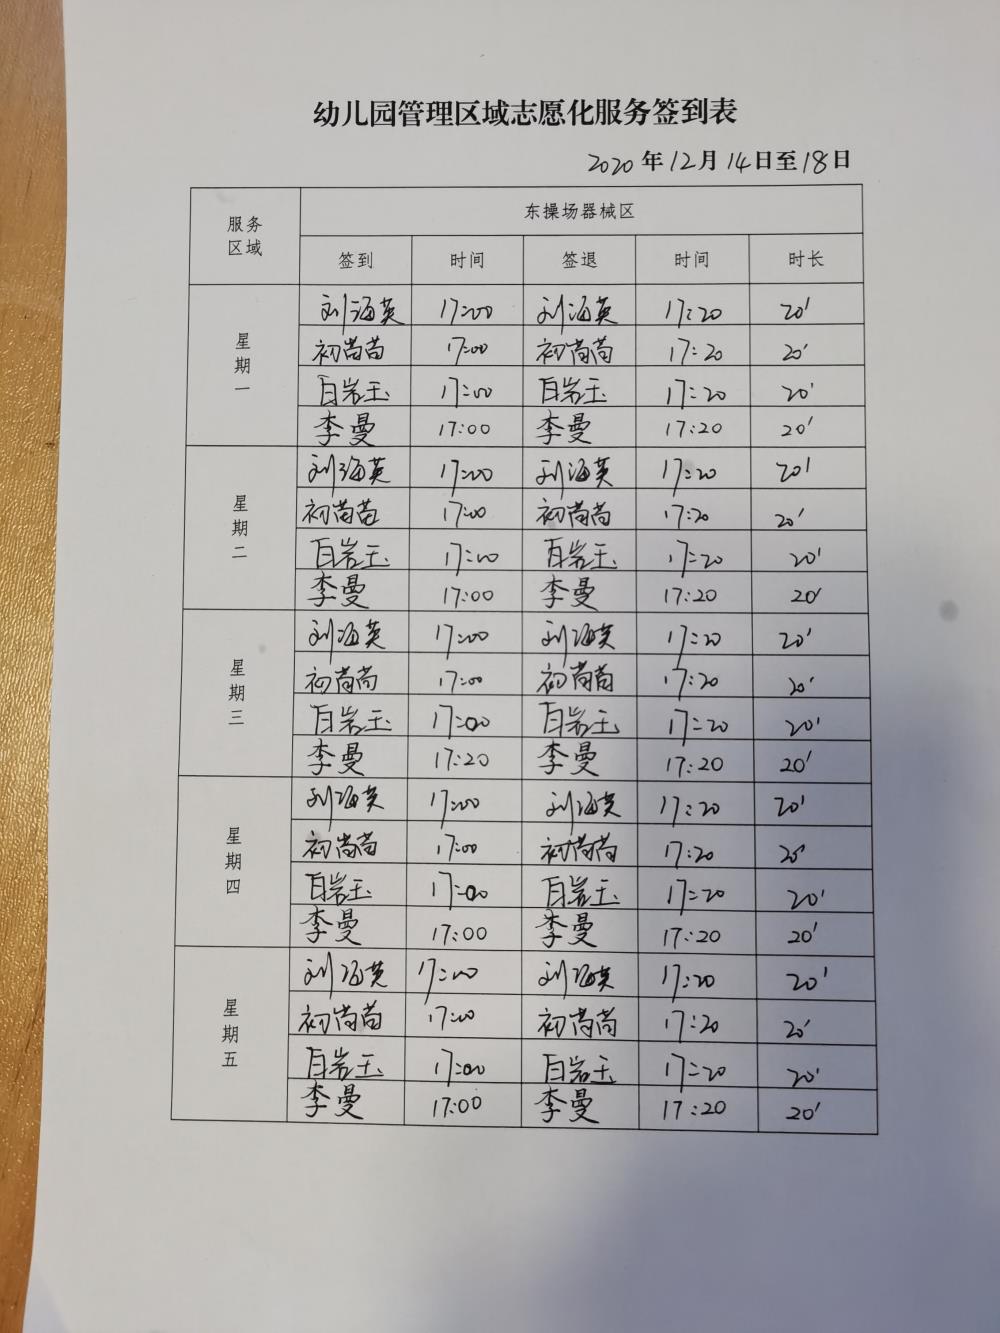 幼儿园管理区域志愿化服务签到表
2020年12月14日至18日
服务区域 东操场器械区
签到 时间 签退 时间 时长
星期一
刘海英 17:00 刘海英 17:20 20'
初苗苗 17:00 初苗苗 17:20 20'
白岩玉 17:00 白岩玉 17:20 20'
李曼 17:00 李曼 17:20 20'
星期二
刘海英 17:00 刘海英 17:20 20'
初苗苗 17:00 初苗苗 17:20 20'
白岩玉 17:00 白岩玉 17:20 20'
李曼 17:00 李曼 17:20 20'
星期三
刘海英 17:00 刘海英 17:20 20'
初苗苗 17:00 初苗苗 17:20 20'
白岩玉 17:00 白岩玉 17:20 20'
李曼 17:20 李曼 17:20 20'
星期四
刘海英 17:00 刘海英 17:20 20'
初苗苗 17:00 初苗苗 17:20 20'
白岩玉 17:00 白岩玉 17:20 20'
李曼 17:00 李曼 17:20 20'
星期五
刘海英 17:00 刘海英 17:20 20'
初苗苗 17:00 初苗苗 17:20 20'
白岩玉 17:00 白岩玉 17:20 20'
李曼 17:00 李曼 17:20 20'